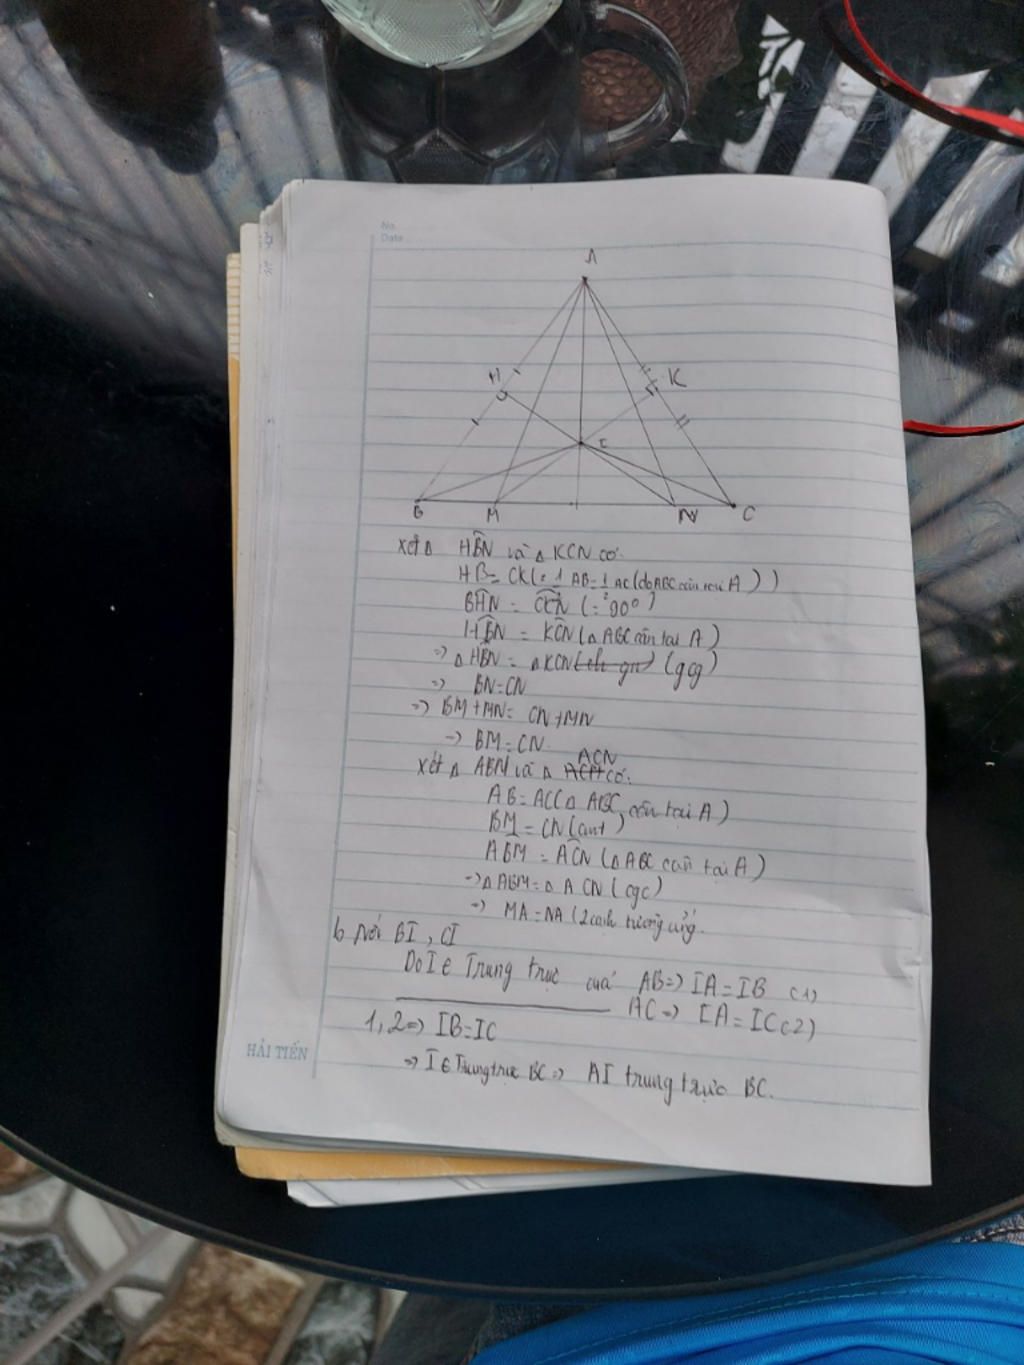 No.
Date
A
H
K
I
B
M
N
C
Xét Δ HBN và Δ KCN có:
HB = CK (= 1/2 AB = 1/2 AC (do ABC cân tại A))
BHN = CKN (= 90°)
HBN = KCN (Δ ABC cân tại A)
=> Δ HBN = Δ KCN (gcg)
=> BN = CN
=> BM + MN = CN + MN
=> BM = CN.
Xét Δ ABN và Δ ACN có:
AB = AC (Δ ABC cân tại A)
BM = CN (cmt)
ABM = ACN (Δ ABC cân tại A)
=> Δ ABM = Δ ACN (cgc)
=> MA = NA (2 cạnh tương ứng.
b Nối BI, CI
Do I ∈ Trung trực của AB => IA = IB (1)
AC => IA = IC (2)
1,2 => IB = IC
=> I ∈ Trung trực BC => AI trung trực BC.
HẢI TIẾN